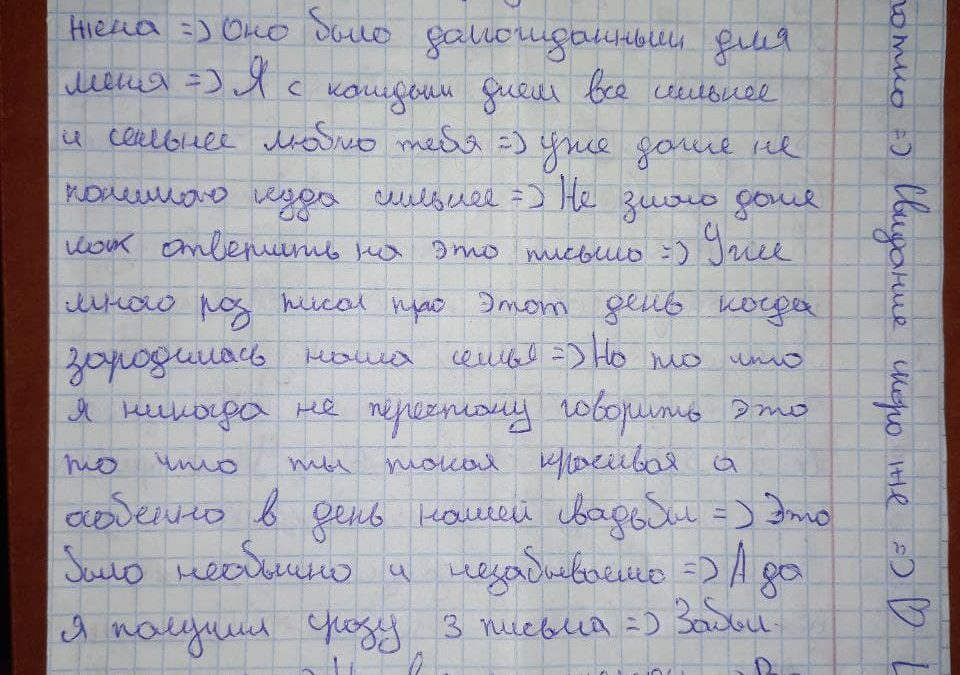 жена =) Оно было долгожданным для
меня =) Я с каждым днем все сильнее
и сильнее люблю тебя =) уже даже не
понимаю куда сильнее =) Не знаю даже
как ответить на это письмо =) Уже
много раз писал про этот день когда
зародилась наша семья =) Но то что
я никогда не перестану говорить это
то что ты такая красивая а
особенно в день нашей свадьбы =) Это
было необычно и незабываемо =) А да
я получил сразу 3 письма =) Забы-
=) Свидание скоро же =) В